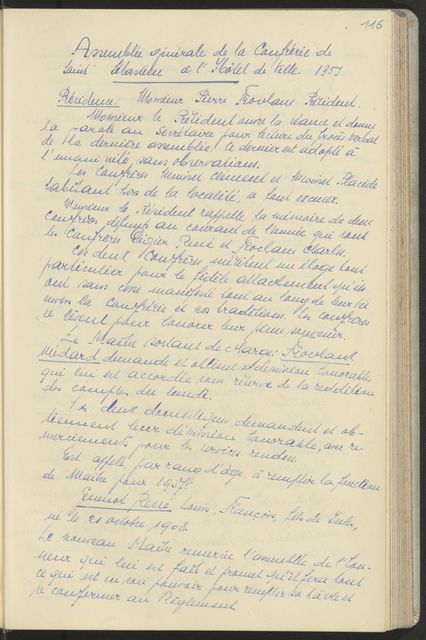 116
Assemblée générale de la Confrérie de
Saint Sébastien à l'Hôtel de Ville. 195
Présidence: Monsieur Pierre Président.
Monsieur le Président ouvre la séance et donne
la parole au Secrétaire pour lecture du procès verbal
de la dernière assemblée. Ce dernier est adopté à
l'unanimité, sans observations.
Les Confrères clément et Placide
habitant hors de la localité se sont excusés.
Monsieur le Président rappelle la mémoire de deux
confrères défunts au courant de l'année qui sont
les Confrères René et Charles.
Ces deux Confrères méritent un éloge tout
particulier pour le fidèle attachement qu'ils
ont sans cesse manifesté tout au long de leur vie
envers la confrérie et nos traditions. Les confrères
se lèvent pour honorer leur souvenir.
Le Maître sortant de charge:
Médard demande et obtient sa démission honorable,
qui lui est accordée sous réserve de la reddition
des comptes du
Les deux domestiques demandent et ob-
tiennent leur démission honorable, avec re-
merciements pour les services rendus.
Est appelé par rang d'âge à remplir la fonction
de Maître pour
René, Louis, François, fils de Jules,
né le 21 octobre 1908.
Le nouveau Maître remercie l'assemblée de l'hon-
neur qui lui est fait et promet qu'il fera tout
ce qui est en son pouvoir pour remplir sa tâche et
se conformer au Règlement